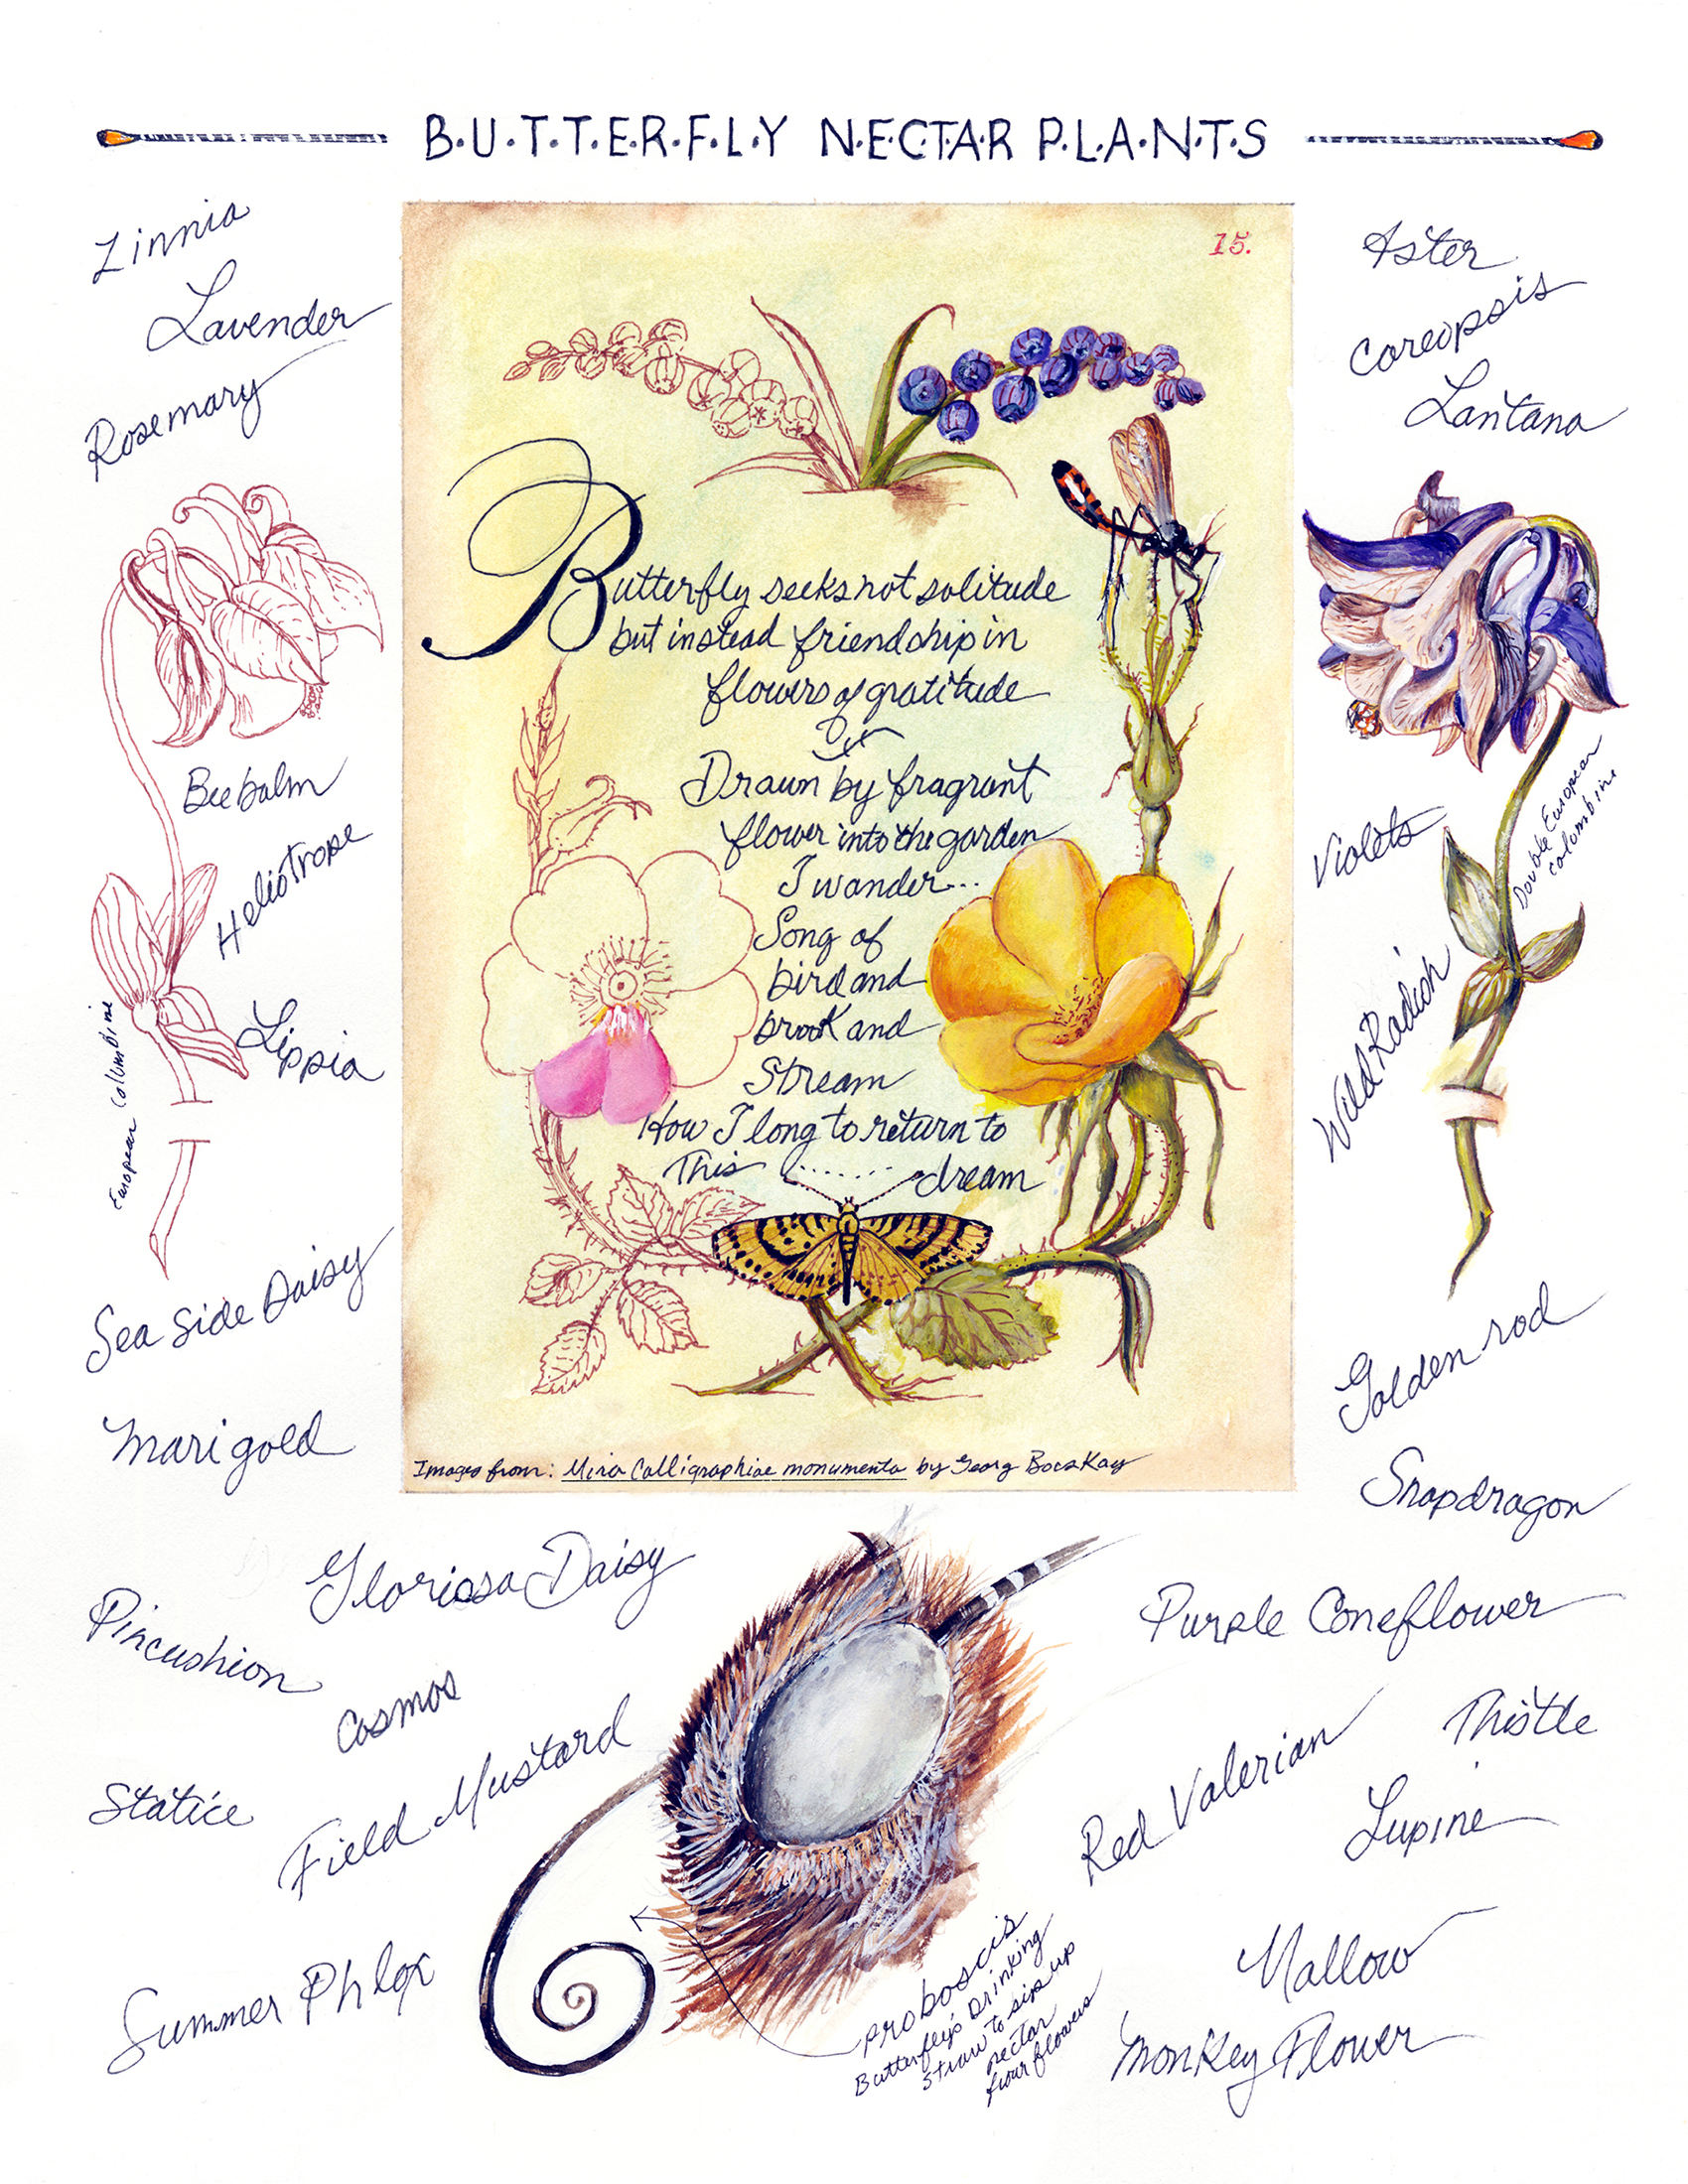 B·U·T·T·E·R·F·L·Y N·E·C·T·A·R P·L·A·N·T·S
Zinnia
Lavender
Rosemary
Beebalm
Heliotrope
Lippia
European Columbine
Sea Side Daisy
Marigold
15.
Butterfly seeks not solitude
but instead friendship in
flowers of gratitude
Drawn by fragrant
flower into the garden
I wander...
Song of
bird and
brook and
Stream
How I long to return to
This ....... dream
Images from: Mira Calligraphiae monumenta by Georg Bocskay
Aster
Coreopsis
Lantana
Double European
Columbine
Violets
Wild Radish
Goldenrod
Snapdragon
Gloriosa Daisy
Pincushion
Cosmos
Field Mustard
Statice
Summer Phlox
proboscis
Butterfly's Drinking
Straw to sip up
nectar
from flowers
Purple Coneflower
Thistle
Red Valerian
Lupine
Mallow
Monkey Flower